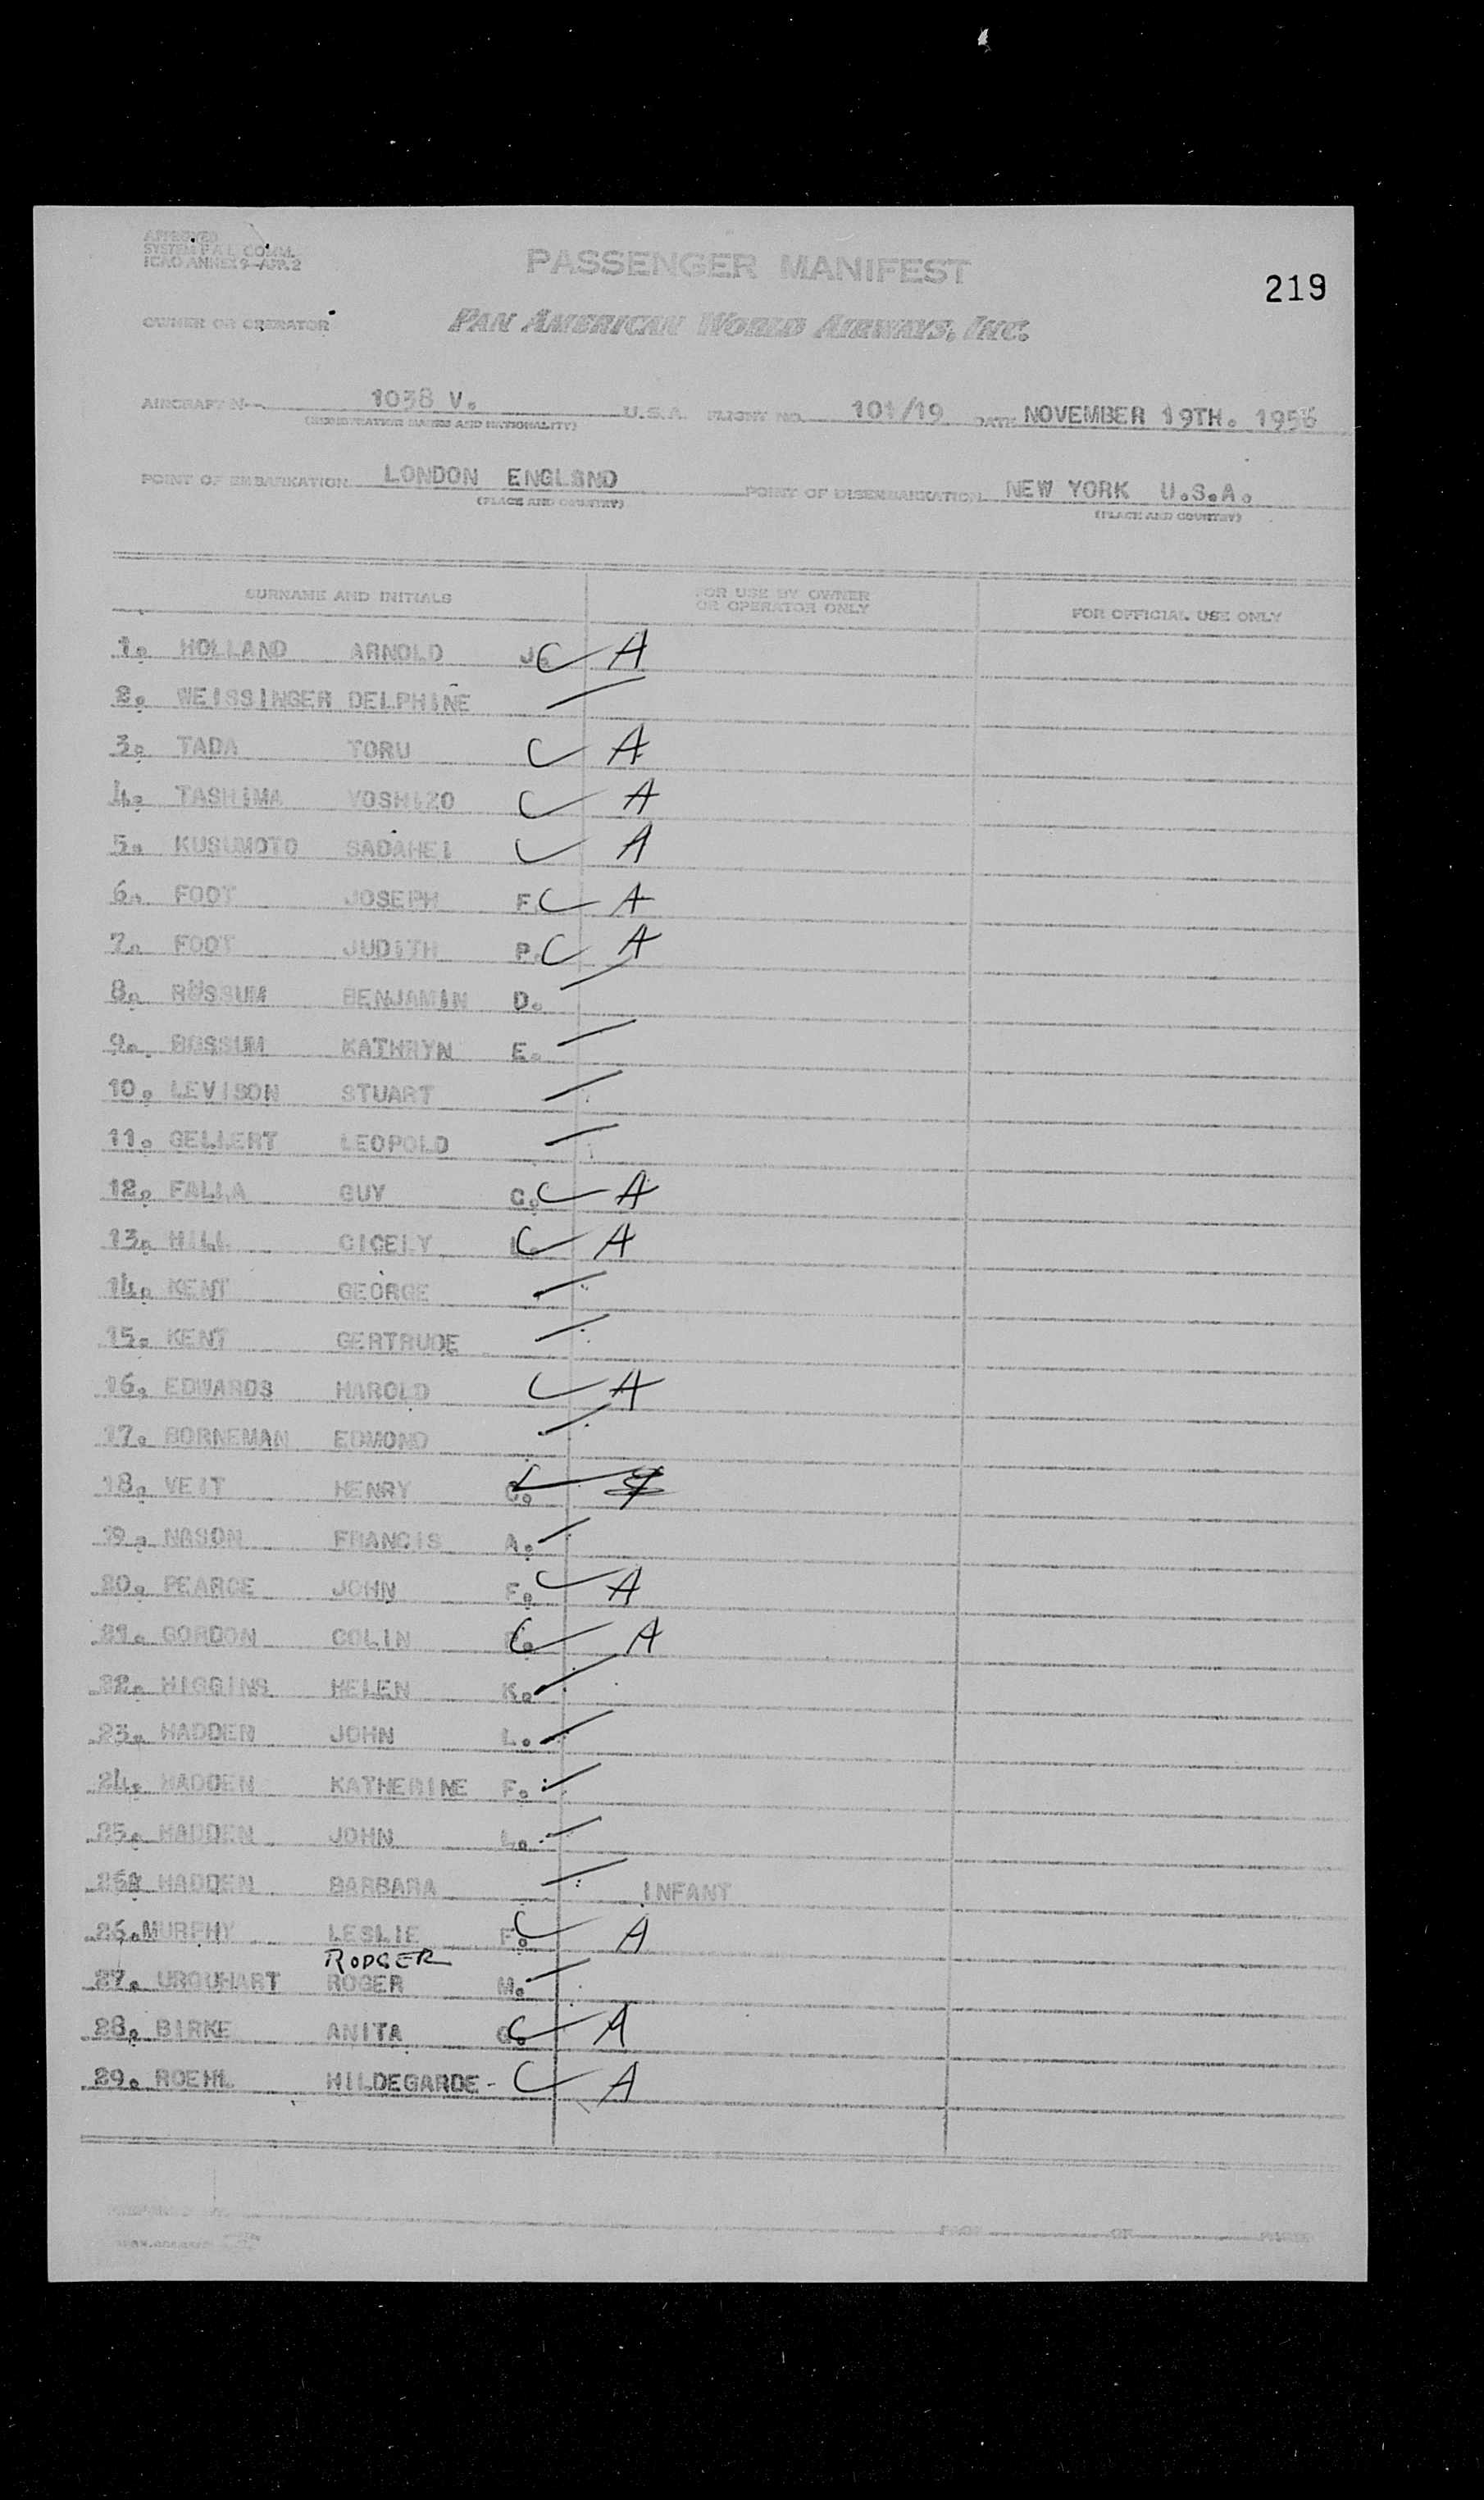 APPROVED
SYSTEM P.A.L. COMM.
ICAO ANNEX 9-APP. 2
PASSENGER MANIFEST
219
OWNER OR OPERATOR
PAN AMERICAN WORLD AIRWAYS, INC.
AIRCRAFT N- 1038 V. U.S.A. FLIGHT NO. 101/19 DATE NOVEMBER 19TH. 1956
(REGISTRATION MARKS AND NATIONALITY)
POINT OF EMBARKATION LONDON ENGLSND POINT OF DISEMBARKATION NEW YORK U.S.A.
(PLACE AND COUNTRY) (PLACE AND COUNTRY)
SURNAME AND INITIALS FOR USE BY OWNER OR OPERATOR ONLY FOR OFFICIAL USE ONLY
1. HOLLAND ARNOLD J. C A
2. WEISSINGER DELPHINE
3. TADA TORU C A
4. TASHIMA YOSHIZO C A
5. KUSUMOTO SADAHEI C A
6. FOOT JOSEPH F. C A
7. FOOT JUDITH P. C A
8. ROSSUM BENJAMIN D.
9. ROSSUM KATHRYN E.
10. LEVISON STUART
11. GELLERT LEOPOLD
12. FALLA GUY C. C A
13. HILL CICELY L. C A
14. KENT GEORGE
15. KENT GERTRUDE
16. EDWARDS HAROLD C A
17. BORNEMAN EDMOND
18. VEIT HENRY C.
19. NASON FRANCIS A.
20. PEARCE JOHN F. C A
21. GORDON COLIN C A
22. HIGGINS HELEN K.
23. HADDEN JOHN L.
24. HADDEN KATHERINE F.
25. HADDEN JOHN L.
25A HADDEN BARBARA INFANT
26. MURPHY LESLIE F. C A
RODGER
27. URQUHART ROGER M.
28. BIRKE ANITA G. C A
29. ROEHL HILDEGARDE - C A
PREPARED BY PAGE OF PAGES